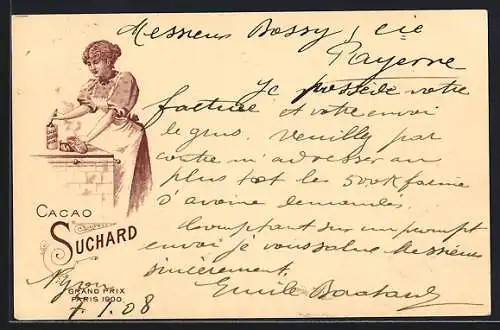 Messieurs Bossy, cie
Payerne
Je possède votre
facture et votre envoi
le grus. Veuilly par
contre m'adresser au
plus tot les 500K farine
d'avoine demandés.
Comptant sur un prompt
envoi je vous salue Messieurs
sincèrement.
Emile
CACAO
SUCHARD
GRAND PRIX
PARIS 1900
Nyon
7.1.08